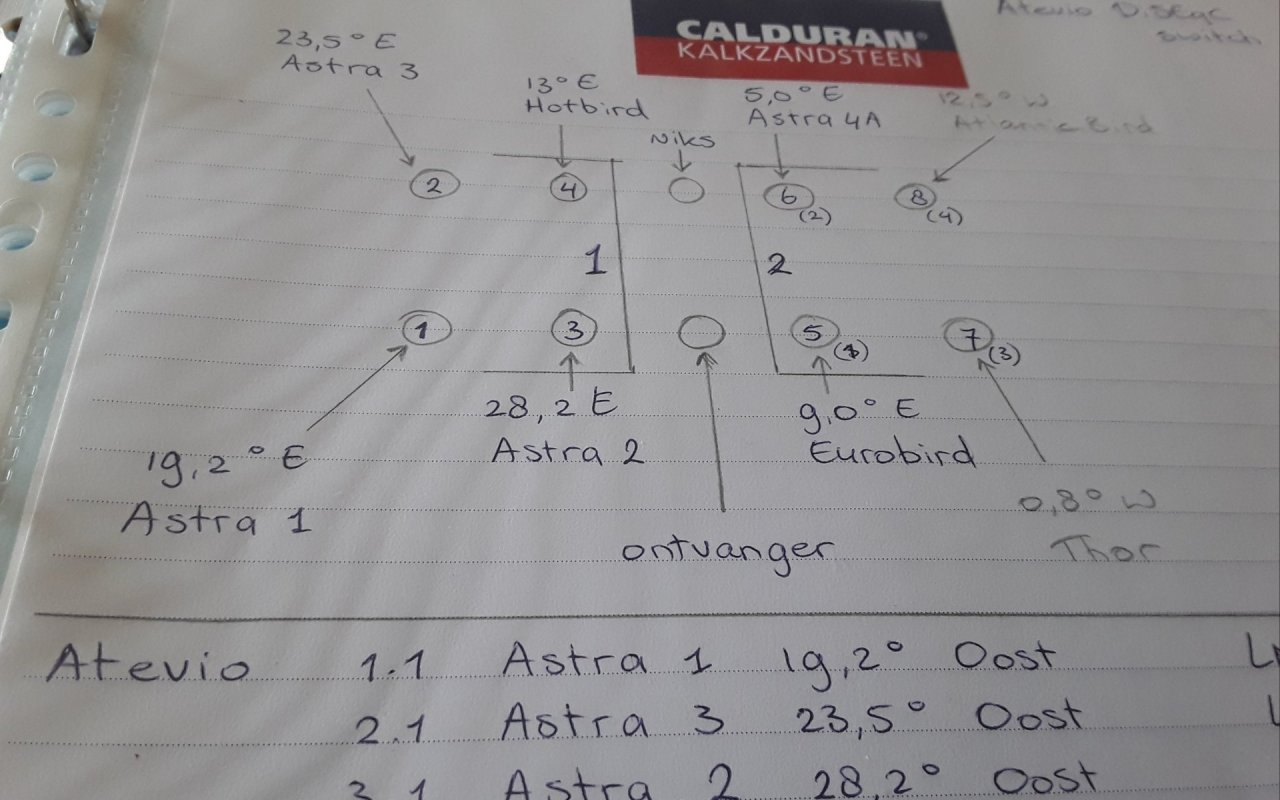 Atevio DiSEqC
switch
CALDURAN®
KALKZANDSTEEN
23,5° E
Astra 3
13° E
Hotbird
Niks
5,0° E
Astra 4A
12,5° W
Atlantic Bird
2
4
6
(2)
8
(4)
1
2
1
3
5
(1)
7
(3)
19,2° E
Astra 1
28,2 E
Astra 2
ontvanger
9,0° E
Eurobird
0,8° W
Thor
Atevio 1.1 Astra 1 19,2° Oost
2.1 Astra 3 23,5° Oost
3.1 Astra 2 28,2° Oost